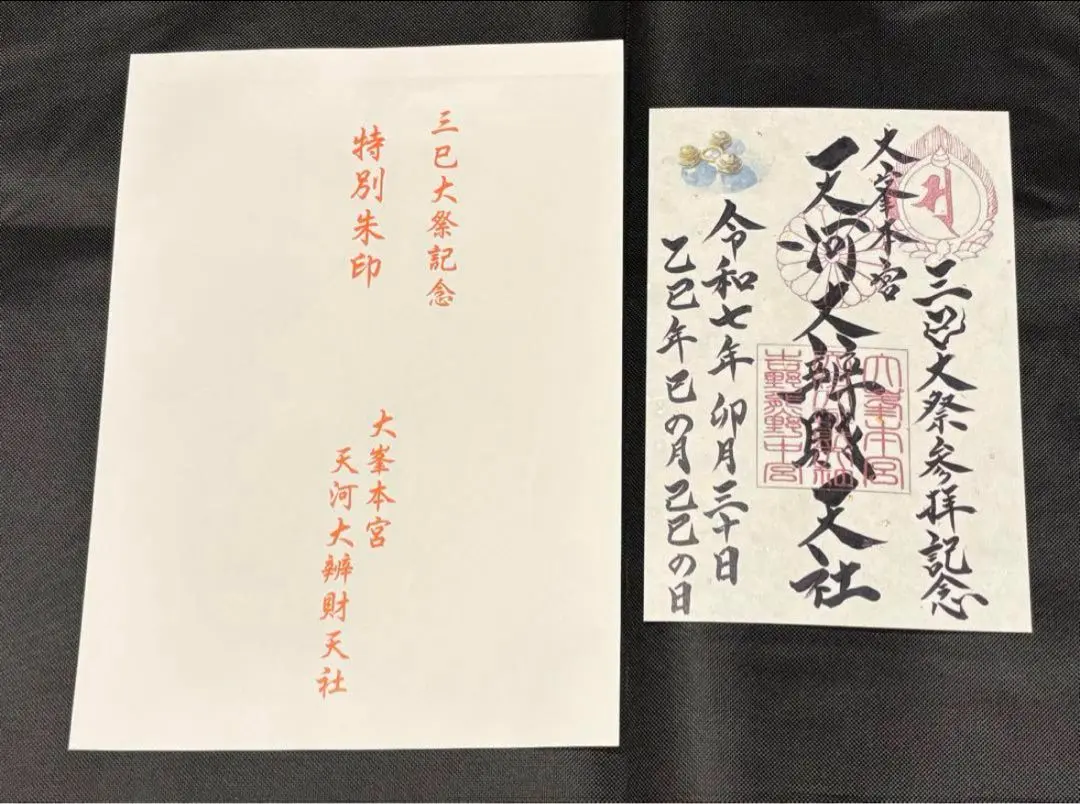 三巳大祭記念
特別朱印
大峯本宮
天河大辨財天社
三巳大祭参拝記念
大峯本宮
天河大辨財天社
令和七年 卯月三十日
乙巳年巳の月己巳の日
大峯本宮
吉野熊野中宮